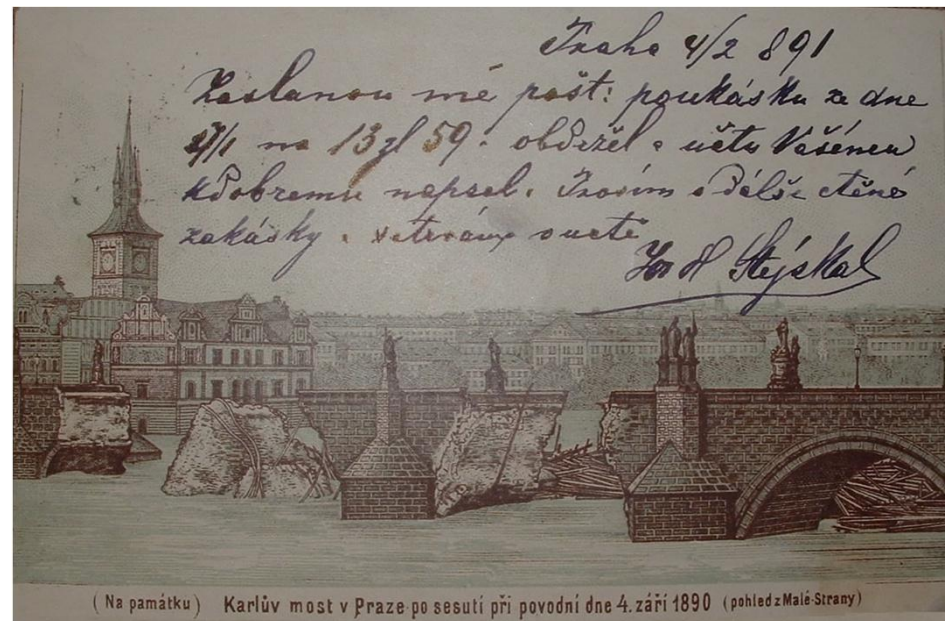 Praha 4/2 891
Zaslanou mě pošt: poukásku ze dne
na 13 zl 59. obdržel a účtu Vašěmu
kdobremu napsal. Prosím o dálše ctěné
zakásky a v úctě
Stýskal
(Na památku) Karlův most v Praze po sesutí při povodní dne 4. září 1890 (pohled z Malé Strany)